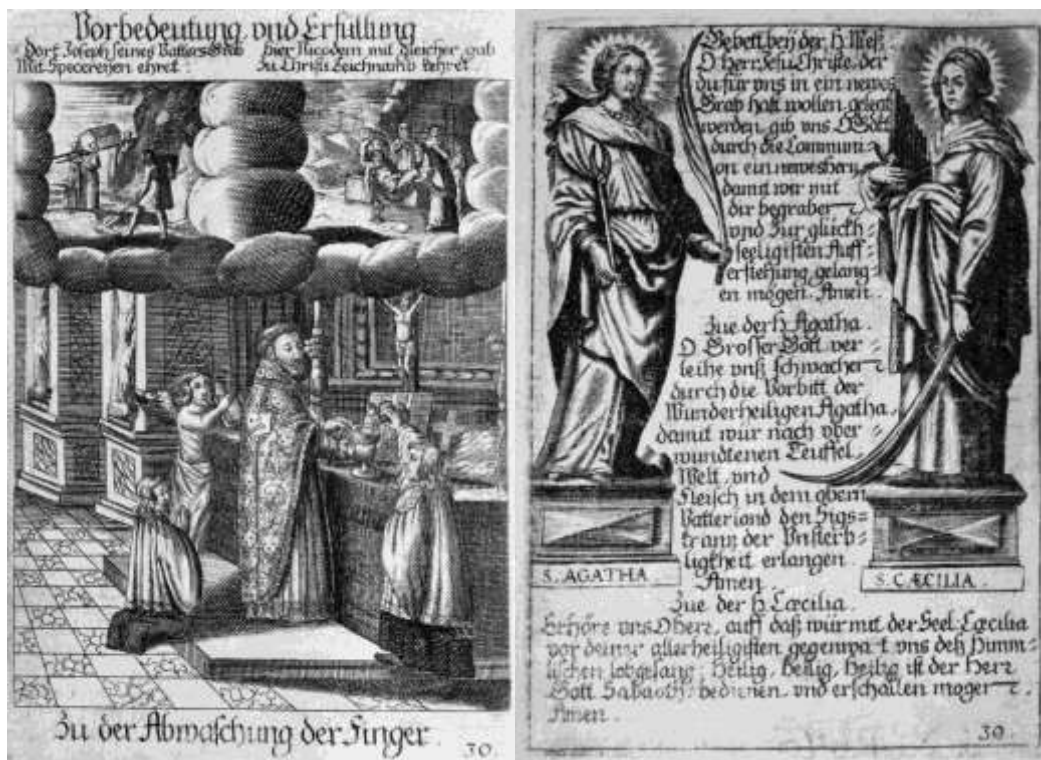 Vorbedeutung vnd Erfüllung
Dort Joseph seines Vatters Grab
Mit Specereyen ehret.
Hier Nicodem mit gleicher gab
Zu Christi Leichnamb kehret.
Zu der Abwaschung der Finger.
30.
Gebett beÿ der H. Meß.
O Herr Jesu Christe, der
du für vns in ein newes
Grab hast wollen gelegt
werden, gib vns O Gott
durch die Communi=
on ein newes hertz
damit wir mit
dir begraben
vnd zur glückh=
seeligisten Auff=
erstehung gelang=
en mögen. Amen.
Zue der h. Agatha.
O Grosser Gott ver=
leihe vnß schwacher
durch die Vorbitt der
Wunderheiligen Agatha,
damit wür nach vber=
wundtenen Teuffel,
Welt, vnd
Fleisch in dem obern
Vatterland den Sigs=
krantz der Vnsterb=
ligkheit erlangen.
Amen.
S. AGATHA.
S. CÆCILIA.
Zue der h. Cæcilia.
Erhöre vns O here, auff daß wür mit der Seel. Cæcilia
vor deiner allerheiligisten gegenwart vns deß Himm=
lischen lobgesang; Heilig, heilig, heilig ist der Herr
Gott Sabaoth, bedienen, vnd erschallen mogen
Amen.
30.